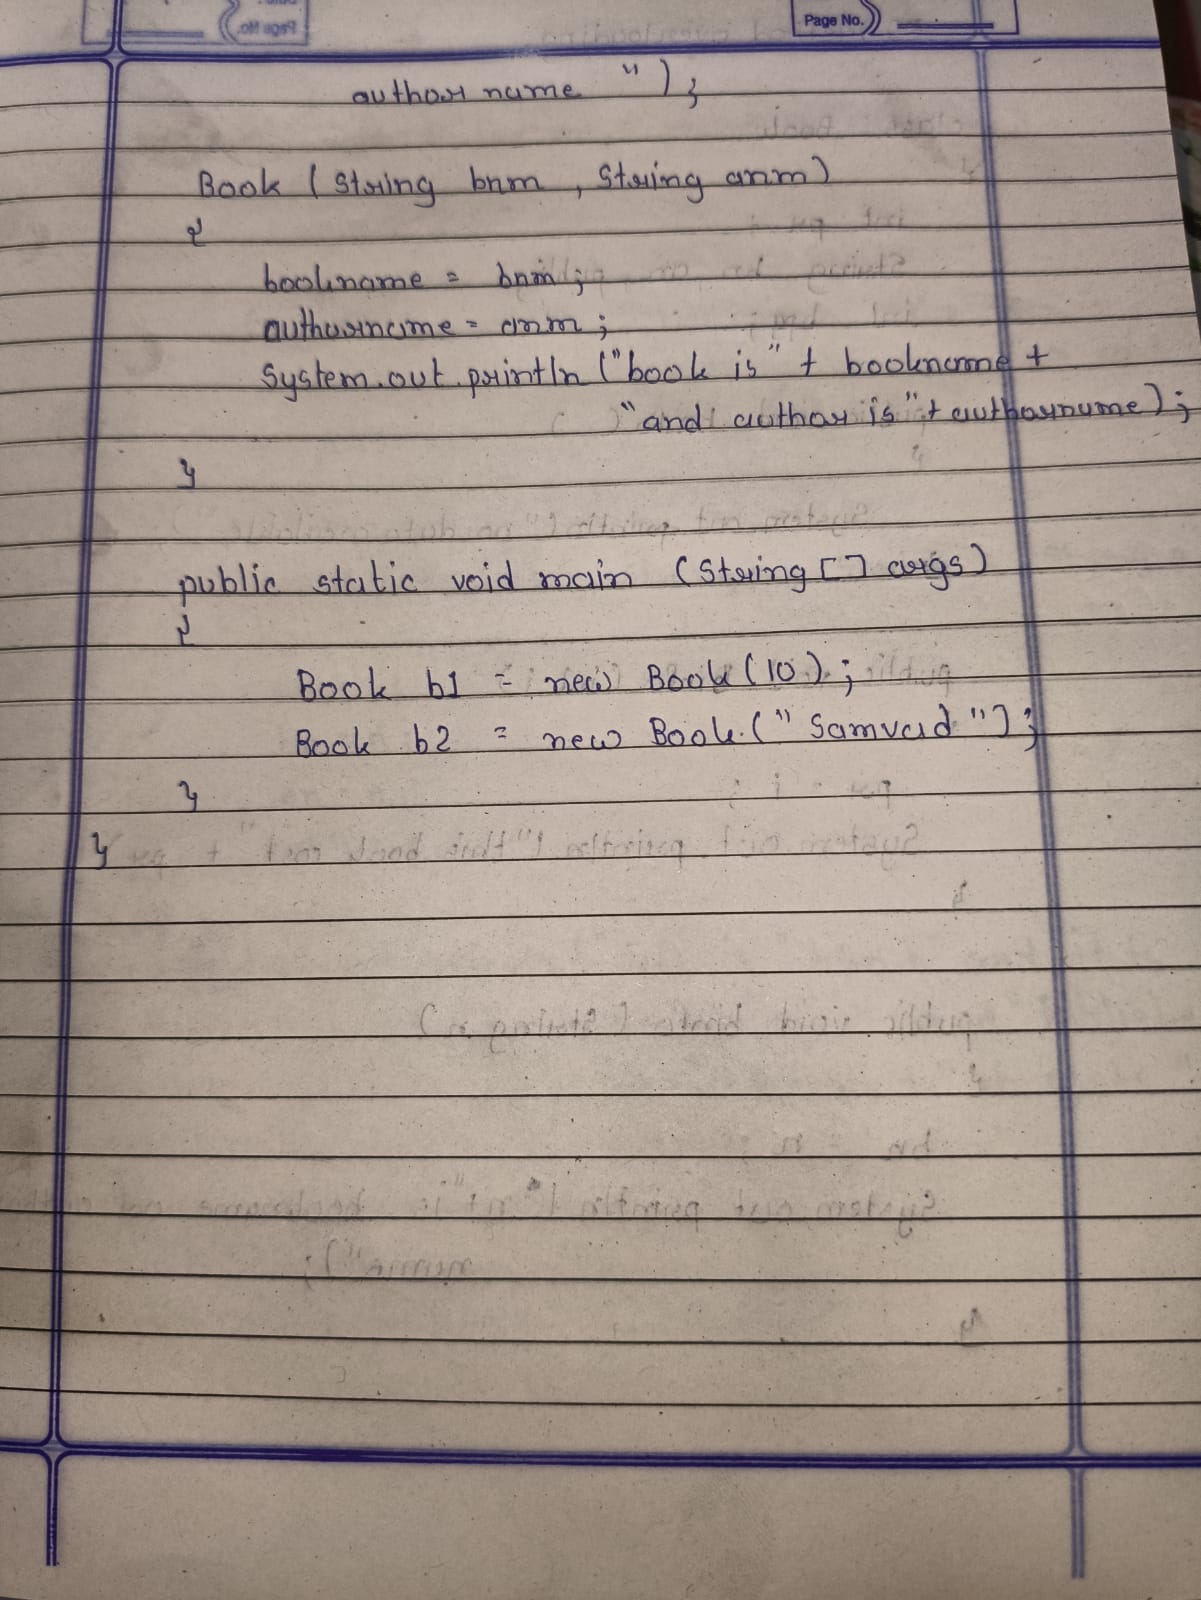 Page No.
author name ");
Book (String bnm , String anm)
{
bookname = bnm;
authorname = anm;
System.out.println ("book is" + bookname +
"and author is" + authorname);
}
public static void main (String [] args)
{
Book b1 = new Book (10);
Book b2 = new Book. (" Samvad ");
}
}